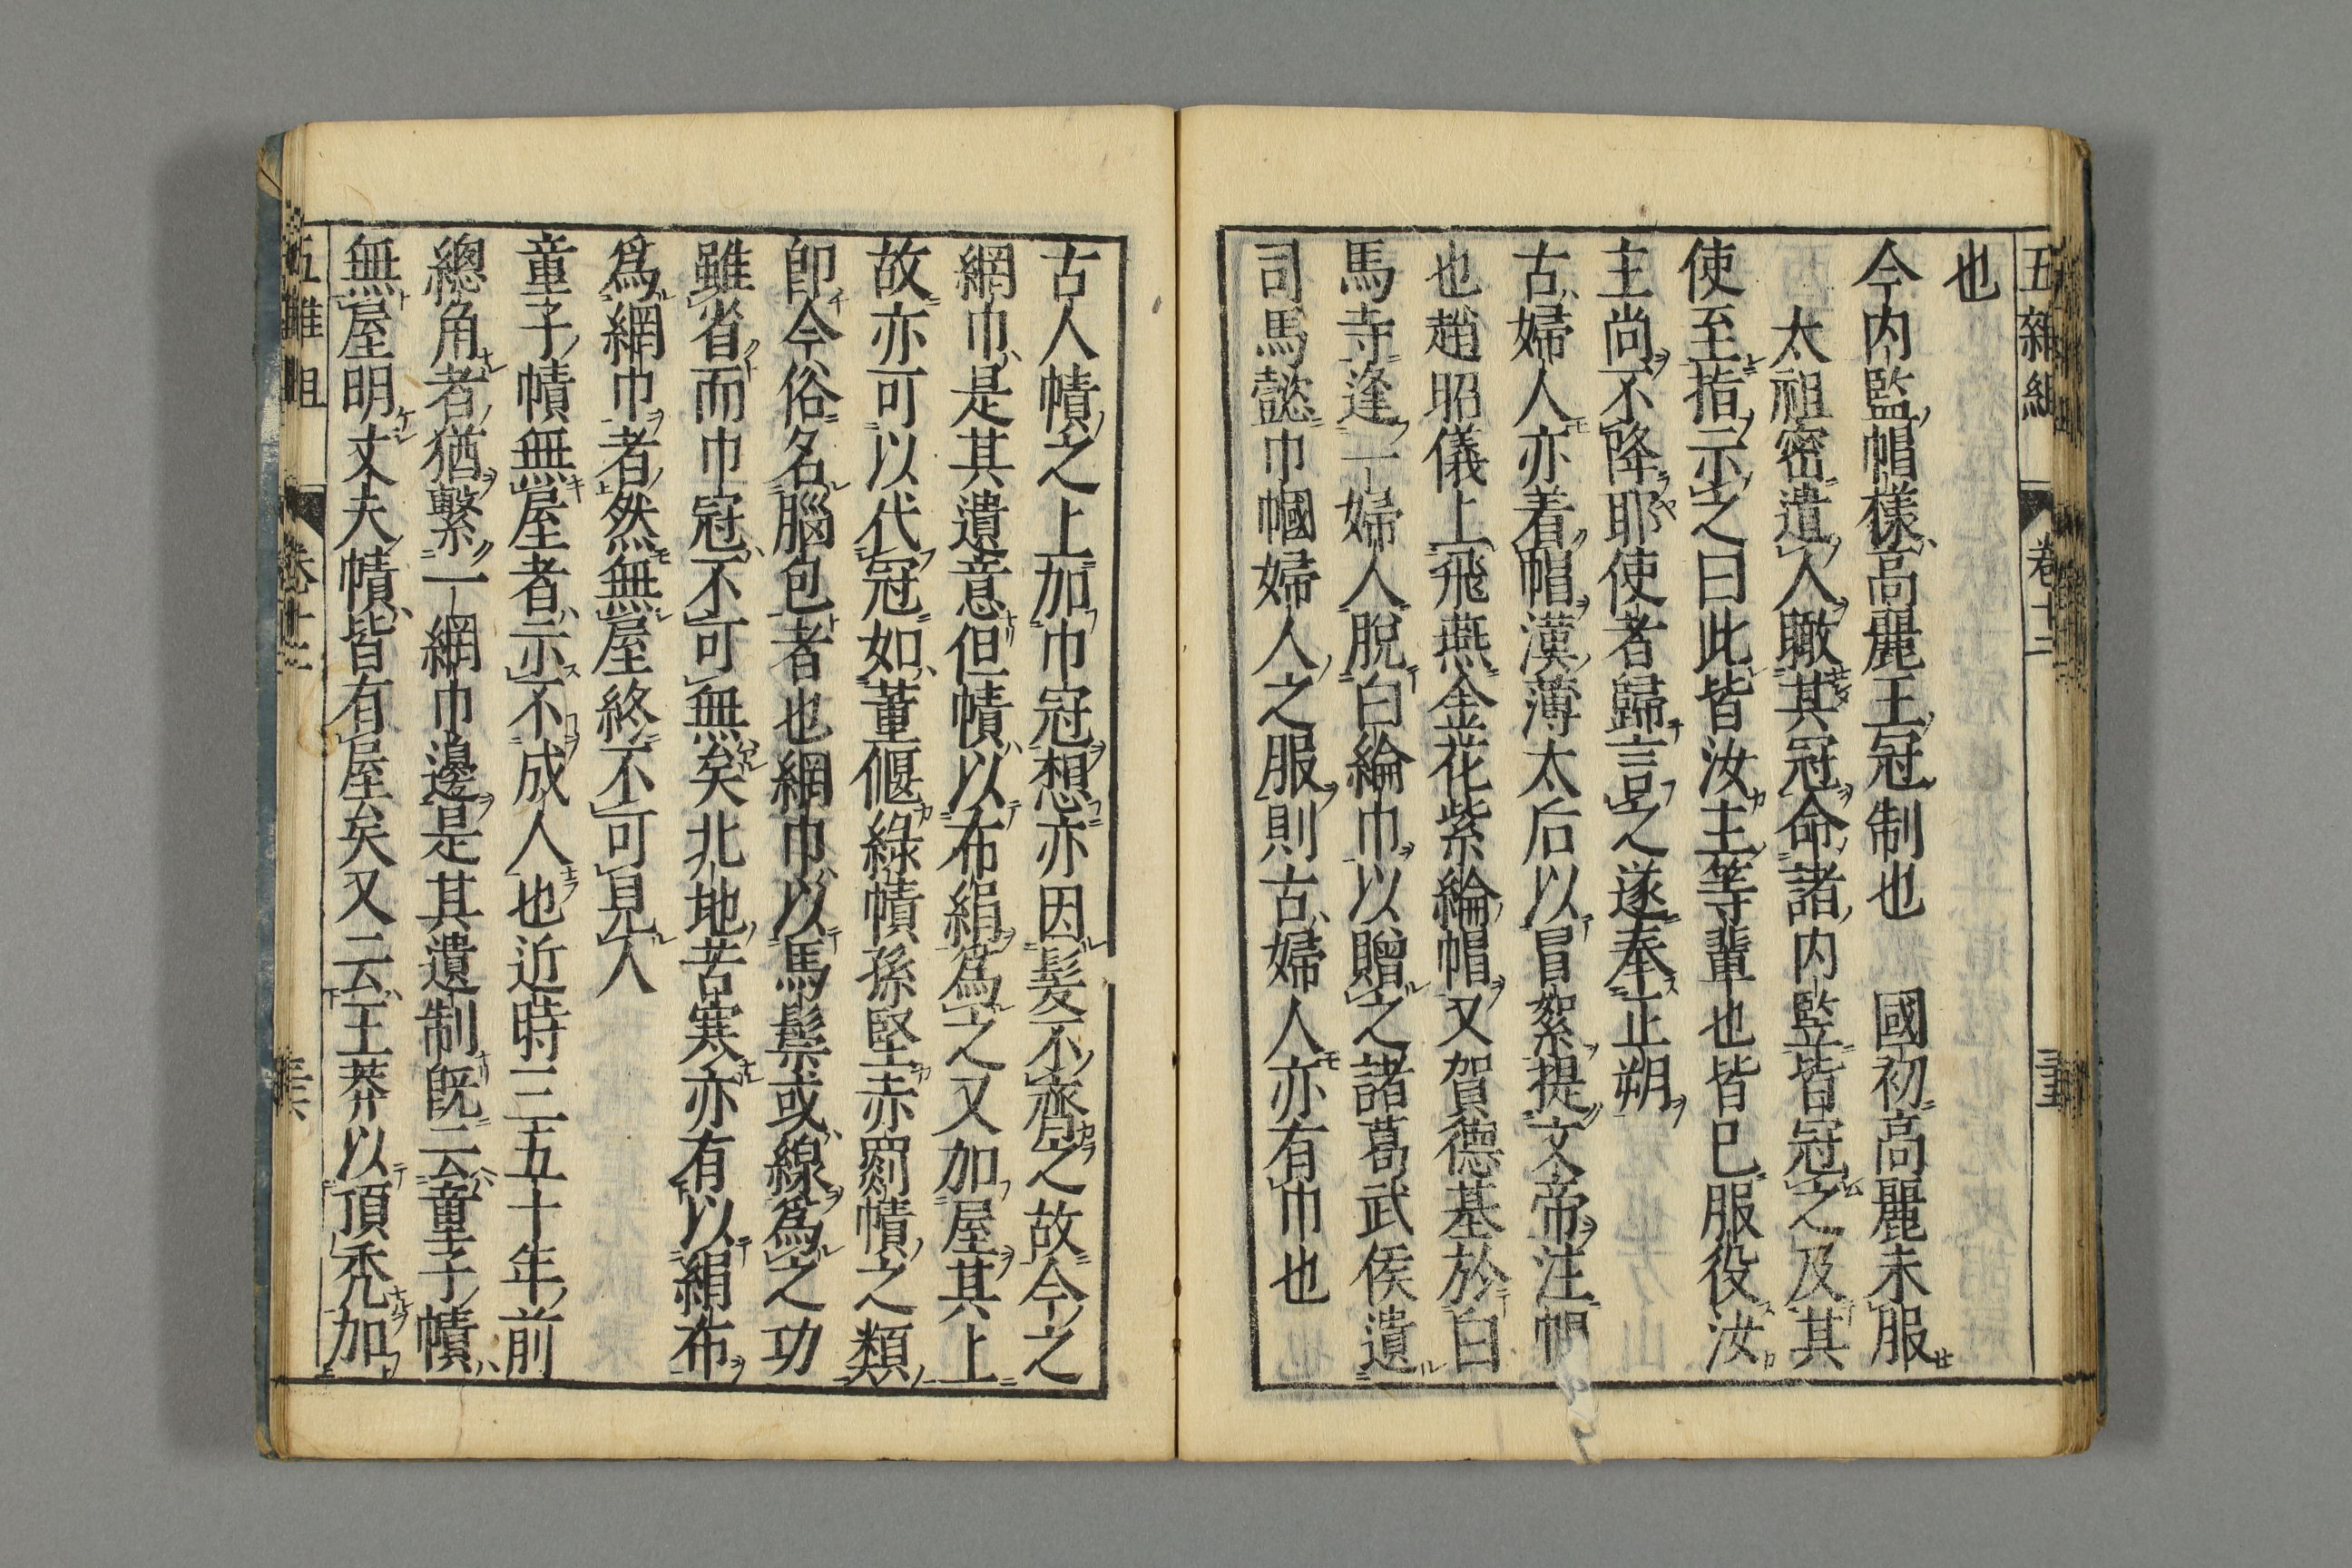 五雜組
卷十二
也
今内監帽様高麗王冠制也　國初高麗未服
太祖密遣人瞰其冠命諸内監皆冠之及其
使至指示之曰此皆汝主等輩也皆已服役汝
主尚不降耶使者歸言之遂奉正朔
古婦人亦着帽漢薄太后以冒絮提文帝注帽
也趙昭儀上飛燕金花紫綸帽又賀德基於白
馬寺逢一婦人脫白綸巾以贈之諸葛武侯遺
司馬懿巾幗婦人之服則古婦人亦有巾也
古人幘之上加巾冠想亦因髮不齊之故今之
網巾是其遺意但幘以布絹為之又加屋其上
故亦可以代冠如董偃綠幘孫堅赤罽幘之類
即今俗名腦包者也網巾以馬鬃或線為之功
雖省而巾冠不可無矣北地苦寒亦有以絹布
為網巾者然無屋終不可見人
童子幘無屋者示不成人也近時三五十年前
總角者猶繫一網巾邊是其遺制既云童子幘
無屋明丈夫幘皆有屋矣又云王莽以頂禿加
五雜俎
卷十二